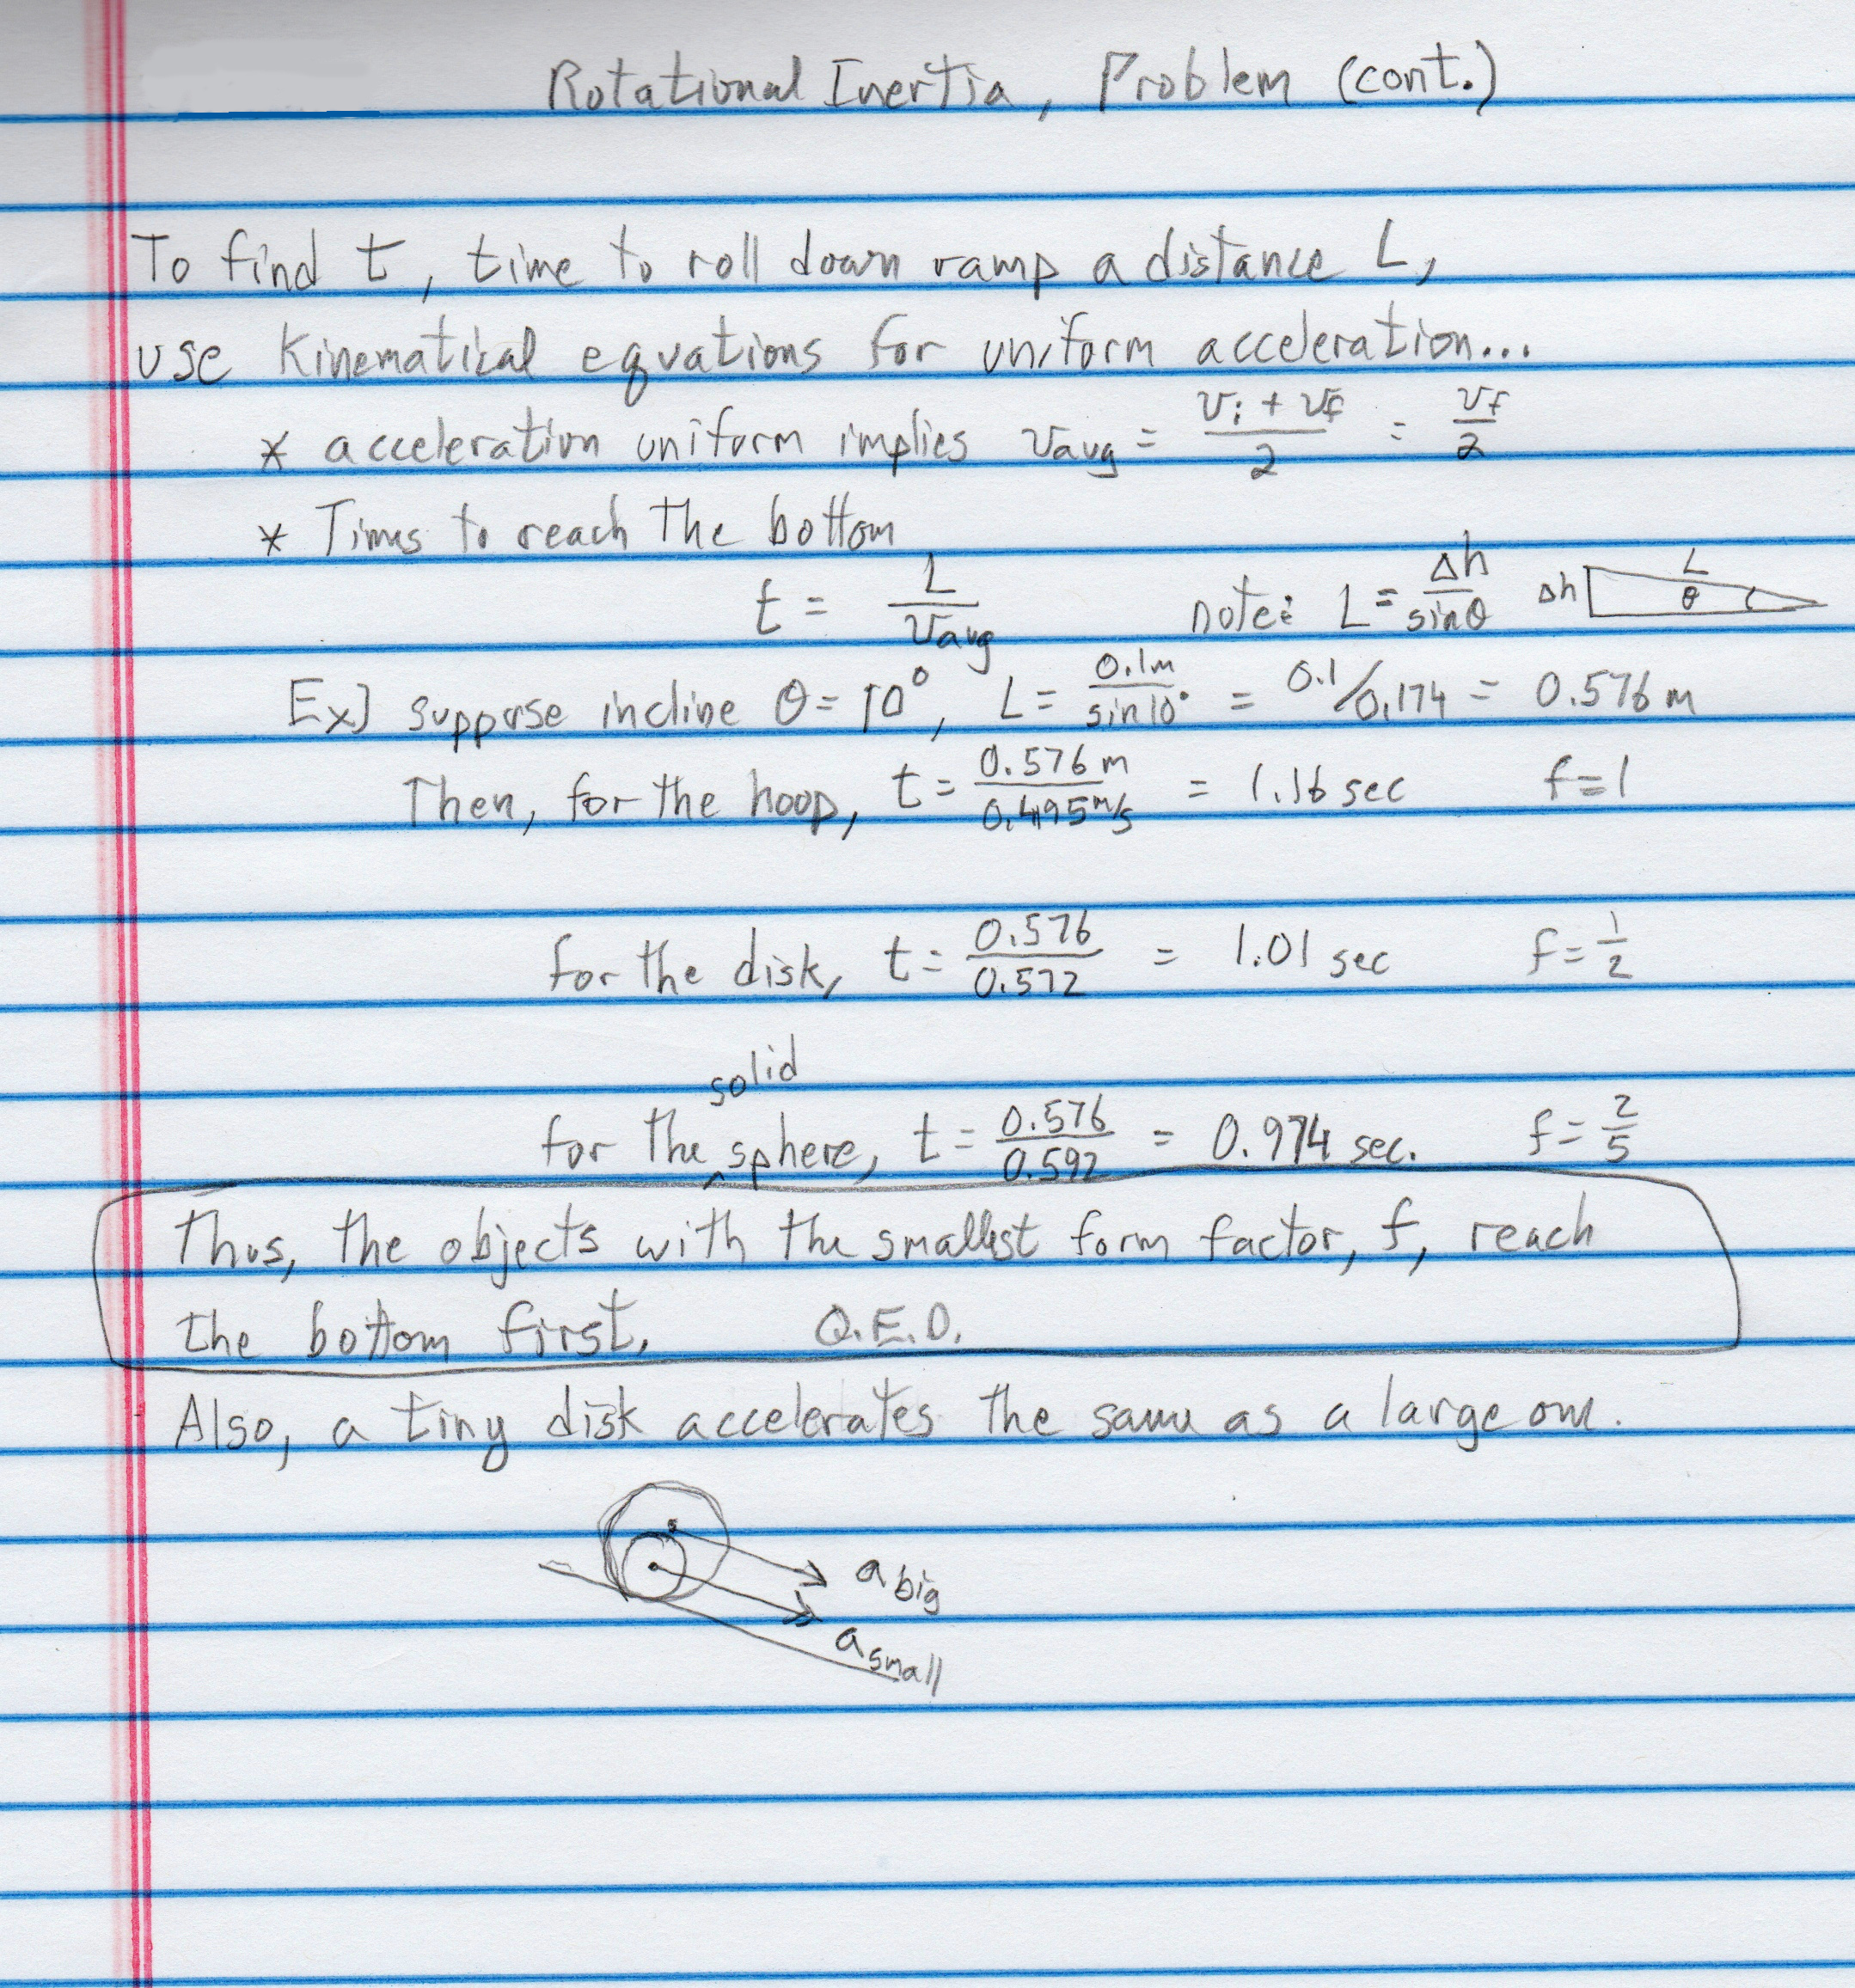 Rotational Inertia, Problem (cont.)
To find t, time to roll down ramp a distance L,
use kinematical equations for uniform acceleration...
* acceleration uniform implies v_avg = (v_i + v_f)/2 = v_f/2
* Times to reach the bottom
t = L/v_avg note: L = Δh/sinθ Δh L θ
Ex] suppose incline θ = 10°, L = 0.1m/sin10° = 0.1/0.174 = 0.576 m
Then, for the hoop, t = 0.576 m/0.495 m/s = 1.16 sec f=1
for the disk, t = 0.576/0.572 = 1.01 sec f = 1/2
for the solid sphere, t = 0.576/0.592 = 0.974 sec. f = 2/5
Thus, the objects with the smallest form factor, f, reach
the bottom first. Q.E.D.
Also, a tiny disk accelerates the same as a large one.
a big
a small